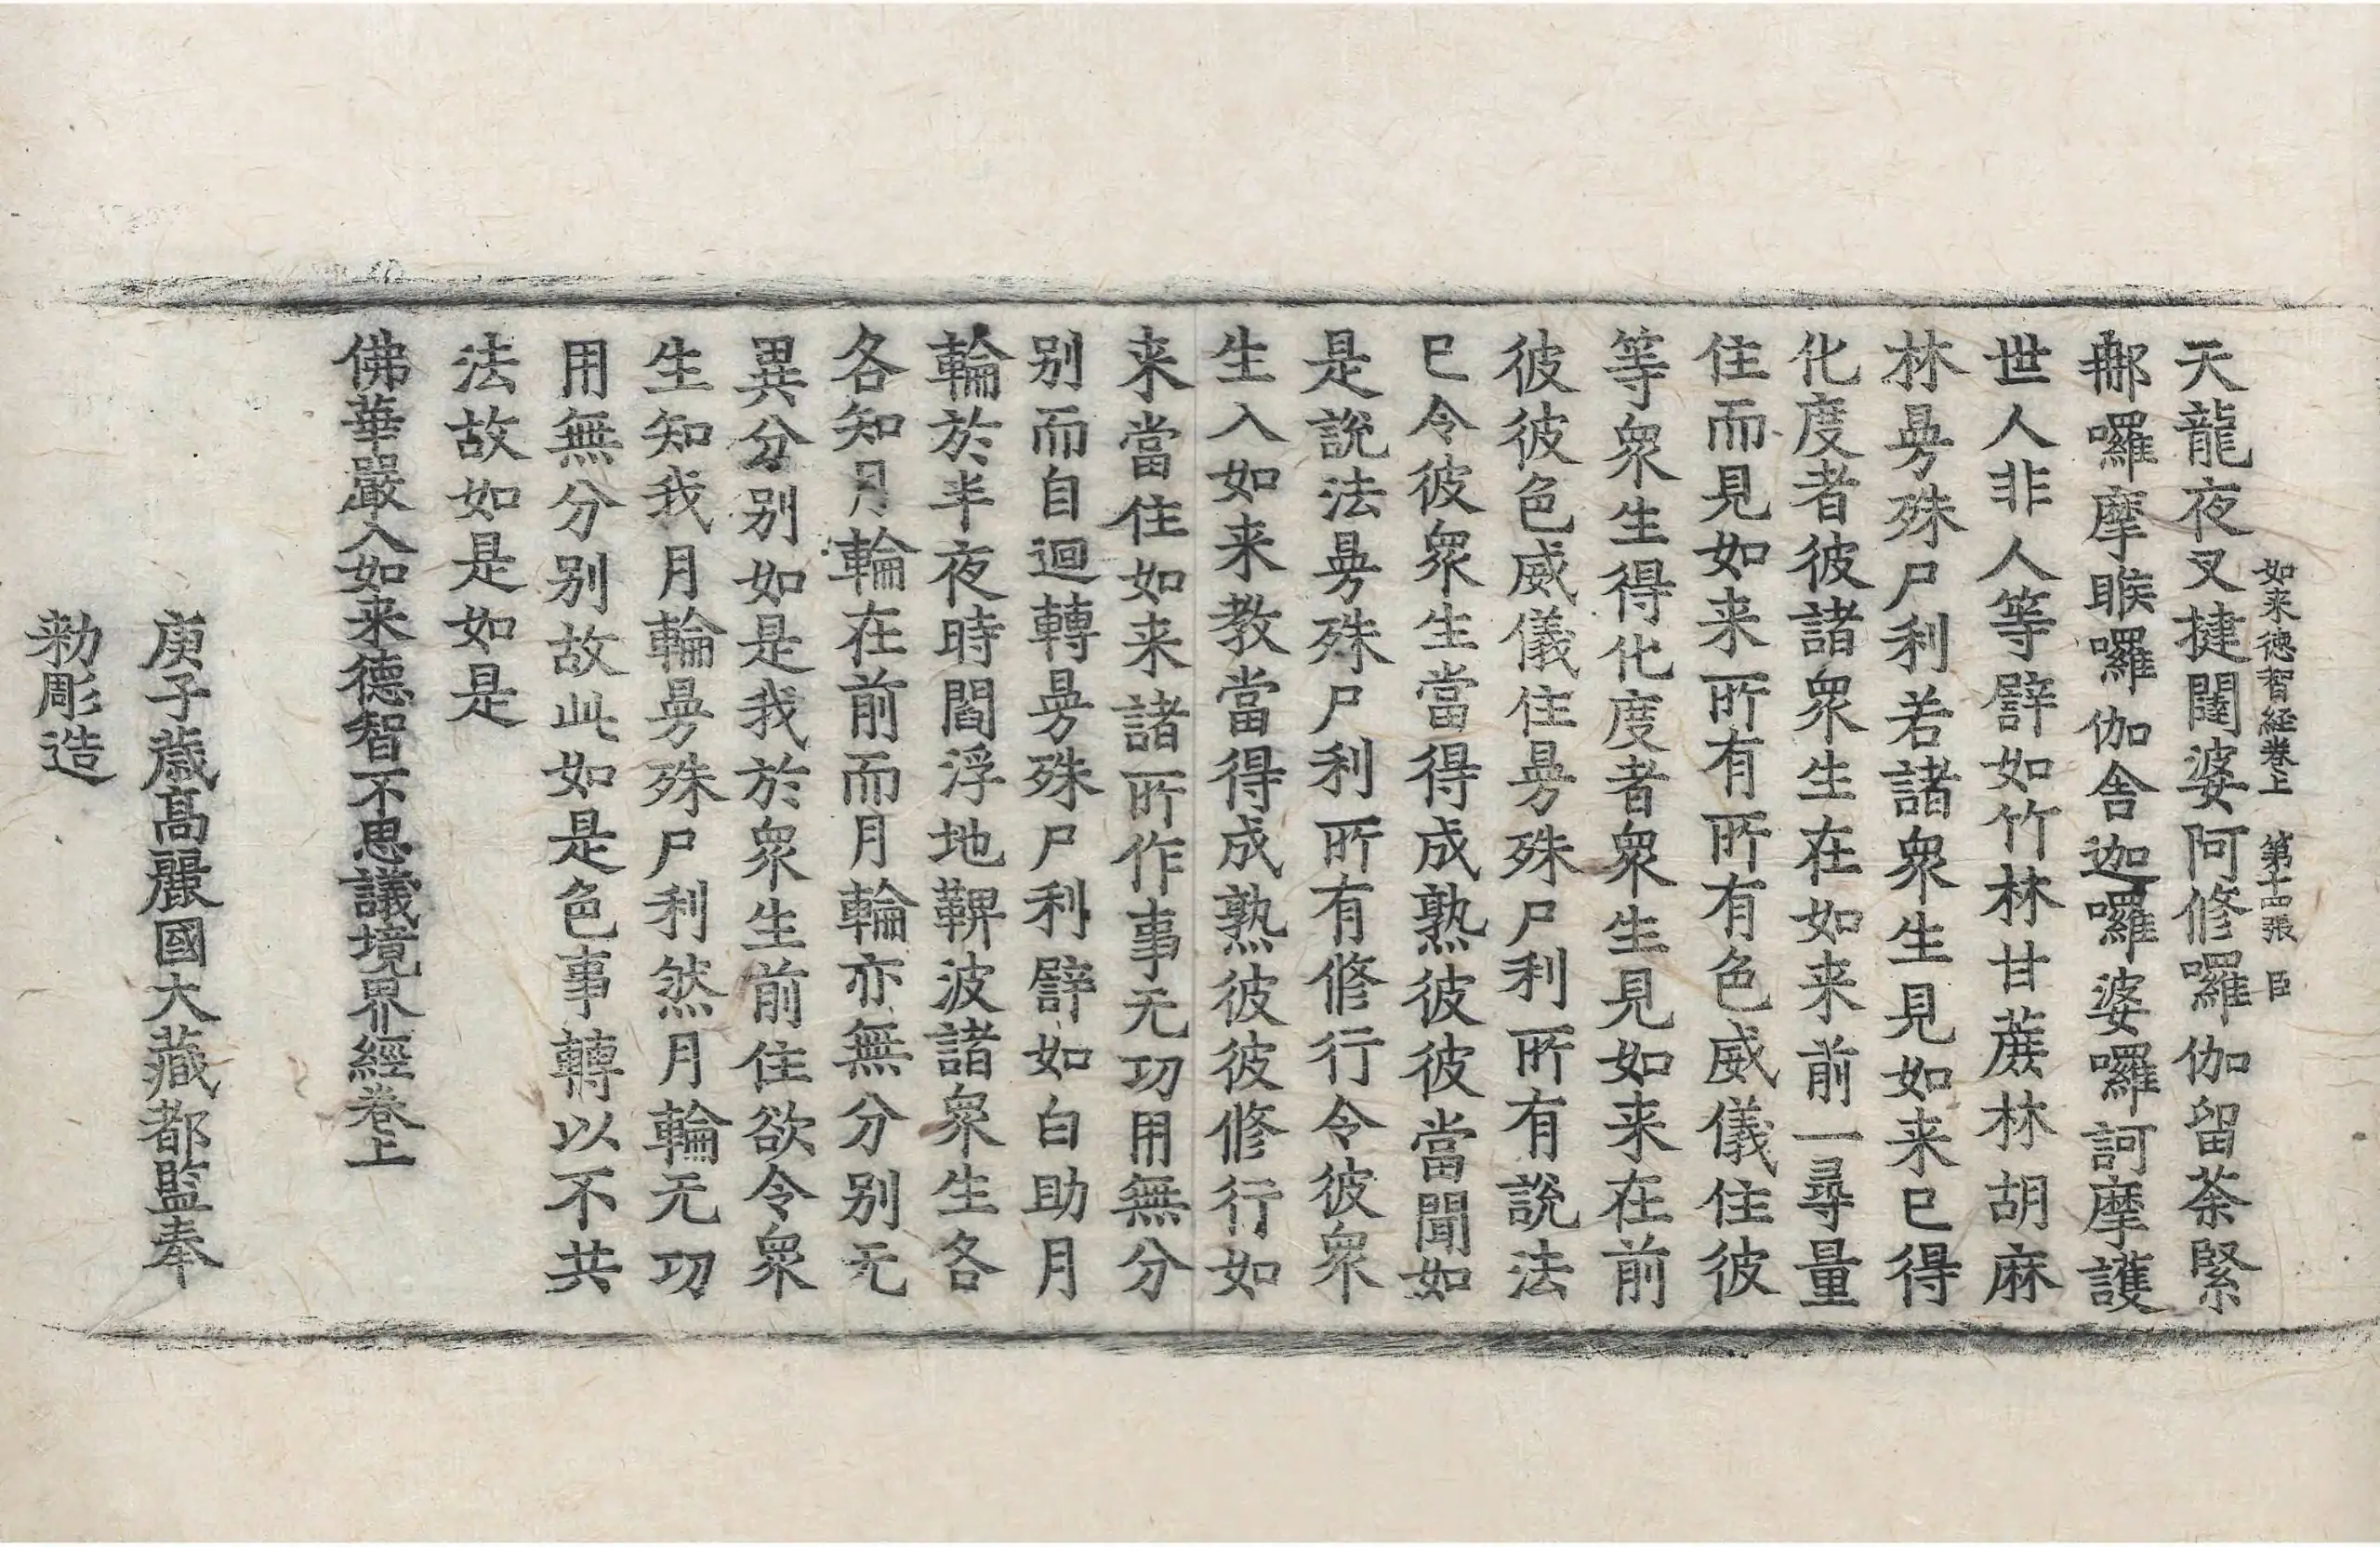 如来德智経卷上 第十四張 臣
天龍夜叉揵闥婆阿修囉伽留荼緊
那囉摩睺囉伽舎迦囉婆囉訶摩護
世人非人等譬如竹林甘蔗林胡麻
林㬅殊尸利若諸衆生見如来已得
化度者彼諸衆生在如来前一尋量
住而見如来所有所有色威儀住彼
等衆生得化度者衆生見如来在前
彼彼色威儀住㬅殊尸利所有說法
已令彼衆生當得成熟彼彼當聞如
是說法㬅殊尸利所有修行令彼衆
生入如来教當得成熟彼彼修行如
来當住如来諸所作事无功用無分
别而自迴轉㬅殊尸利譬如白助月
輪於半夜時閻浮地鞞波諸衆生各
各知月輪在前而月輪亦無分别无
異分别如是我於衆生前住欲令衆
生知我月輪㬅殊尸利然月輪无功
用無分别故此如是色事轉以不共
法故如是如是
佛華嚴入如来德智不思議境界經卷上
庚子歳高麗國大藏都監奉
勑彫造